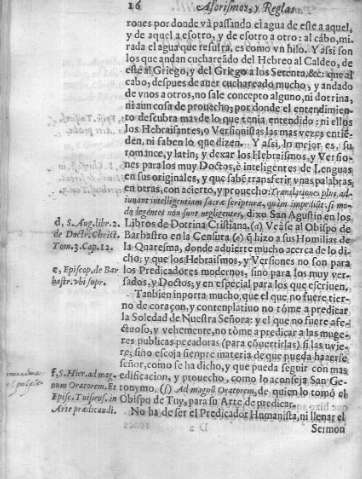 16 Aforismos, y Reglas
rones por donde và passando el agua de este a aquel,
y de aquel a esotro, y de esotro a otro: al cabo, mi-
rada el agua que resulta, es como vn hilo. Y assi son
los que andan cuchareãdo del Hebreo al Caldeo, de
este al Griego, y del Griego a los Setenta, &c. que al
cabo, despues de auer cuchareado mucho, y andado
de vnos a otros, no sale concepto alguno, ni dotrina,
ni aun cosa de prouecho, por donde el entendimien-
to descubra mas de lo que tenia entendido: ni ellos
los Hebraistas, o Versionistas las mas vezes entiē-
den, ni saben lo que dizen. Y assi, lo mejor es, su
romance, y latin, y dexar los Hebraismos, y Versio-
nes para los muy Doctos, è inteligentes de Lenguas
en sus originales, y que sabẽ trasferir vnas palabras
en otras, con acierto, y prouecho:
iuuant intelligentiam sacræ scripturæ, quàm impediūt, si mo-
dò legentes non sint negligentes, dixo San Agustin en los
d, S. Aug. libr. 2. Libros de Dotrina Cristiana. (d) Vease al Obispo de
de Doctr. Christi. Barbastro en la Censura q̃ hizo a sus Homilias de
Tom. 3. Cap. 12. la Quaresma, donde aduierte mucho acerca de lo di-
cho; y que los Hebraismos, y Versiones no son para
e, Episcop. de Bar los Predicadores modernos, sino para los muy ver-
bastr. vbi supr. sados, y Doctos; y en especial para los que escriuen.
Tambien inporta mucho, que el que no fuere tier-
no de coraçon, y contemplatiuo no tome a predicar
la Soledad de Nuestra Señora: y el que no fuere afe-
ctuoso, y vehemente, no tome a predicar a las muge-
res publicas pecadoras (para cõuertirlas)
te; sino escoja sienpre materia de que pueda hazerse
señor, como se ha dicho, y que pueda seguir con mas
f, S. Hier. ad mag- edificacion, y prouecho, como lo aconseja San Ge-
num Oratorem. Et ronymo. (f) Ad magnũ Oratorem, de quien lo tomò el
Episc. Tuisens. in Obispo de Tuy, para su Arte de predicar.
Arte prædicandi. No ha de ser el Predicador Humanista, ni llenar el
Sermon